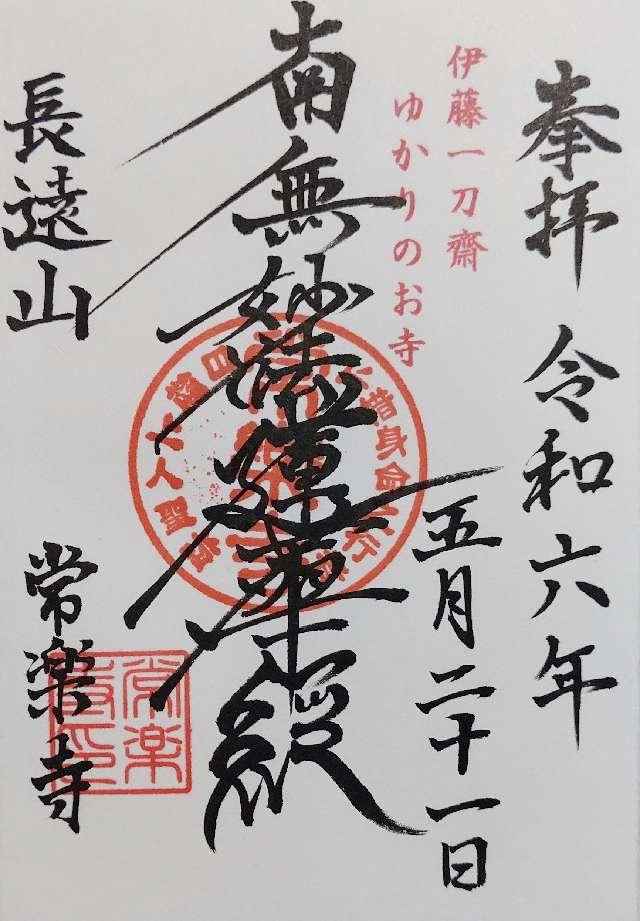 奉拝 令和六年
五月二十一日
伊藤一刀齋
ゆかりのお寺
南無妙法蓮華経
長遠山
常楽寺
常楽寺印